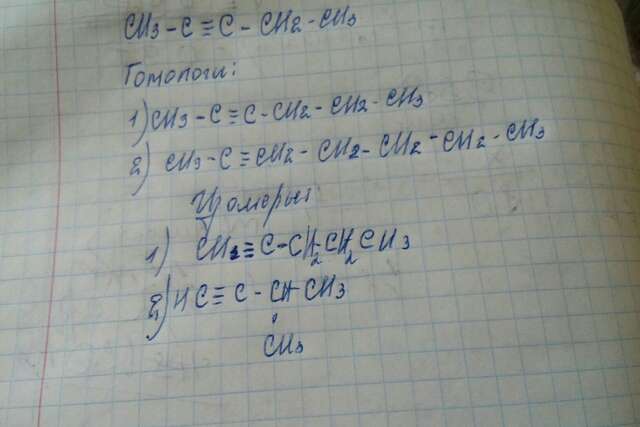 CH3 - C ≡ C - CH2 - CH3
Гомологи:
1) CH3 - C ≡ C - CH2 - CH2 - CH3
2) CH3 - C ≡ CH2 - CH2 - CH2 - CH2 - CH3
Изомеры:
1) CH2 ≡ C - CH2 CH2 CH3
2) HC ≡ C - CH CH3
CH3